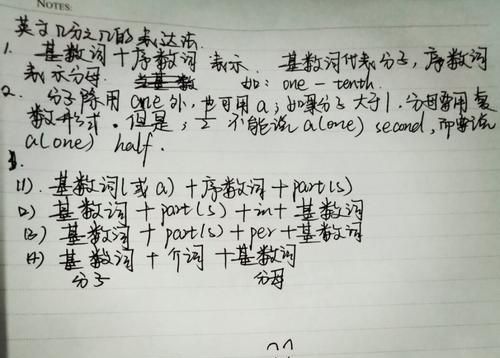 NOTES:
英文几分之几的表达法.
1. 基数词+序数词 表示. 基数词代表分子, 序数词
表示分母. 如: one-tenth.
2. 分子除用one外, 也可用a; 如果分子大于1. 分母要用复
数形式. 但是; 1/2 不能说 a(one) second, 而要说
a(one) half.
3.
(1). 基数词(或a)+序数词+part(s)
(2) 基数词+part(s)+in+基数词
(3) 基数词+part(s)+per+基数词
(4) 基数词+介词+基数词
分子 分母